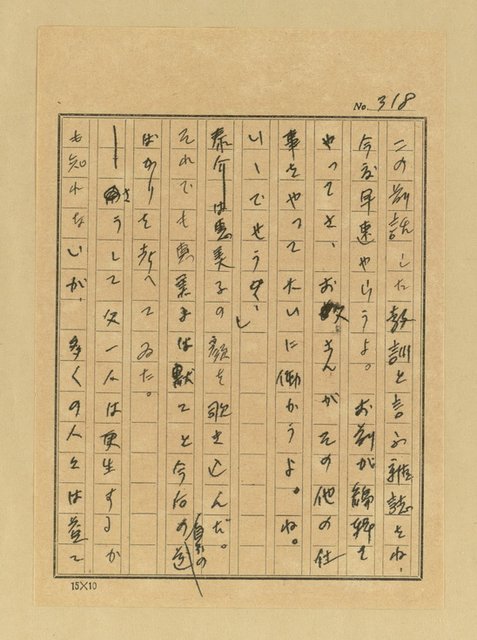 No. 318
この前話した教訓と言ふ雑誌をね、
今度早速やらうよ。お前が編輯を
やってさ、お父さんがその他の仕
事をやって大いに働かうよ。ね。
いゝでせう。」
泰介は恵美子の顔を覗き込んだ。
それでも恵美子は黙つて今后の自分の道
ばかりを考へてゐた。
――さうして父一人は更生するか
も知れないが、多くの人々は苔て
15×10